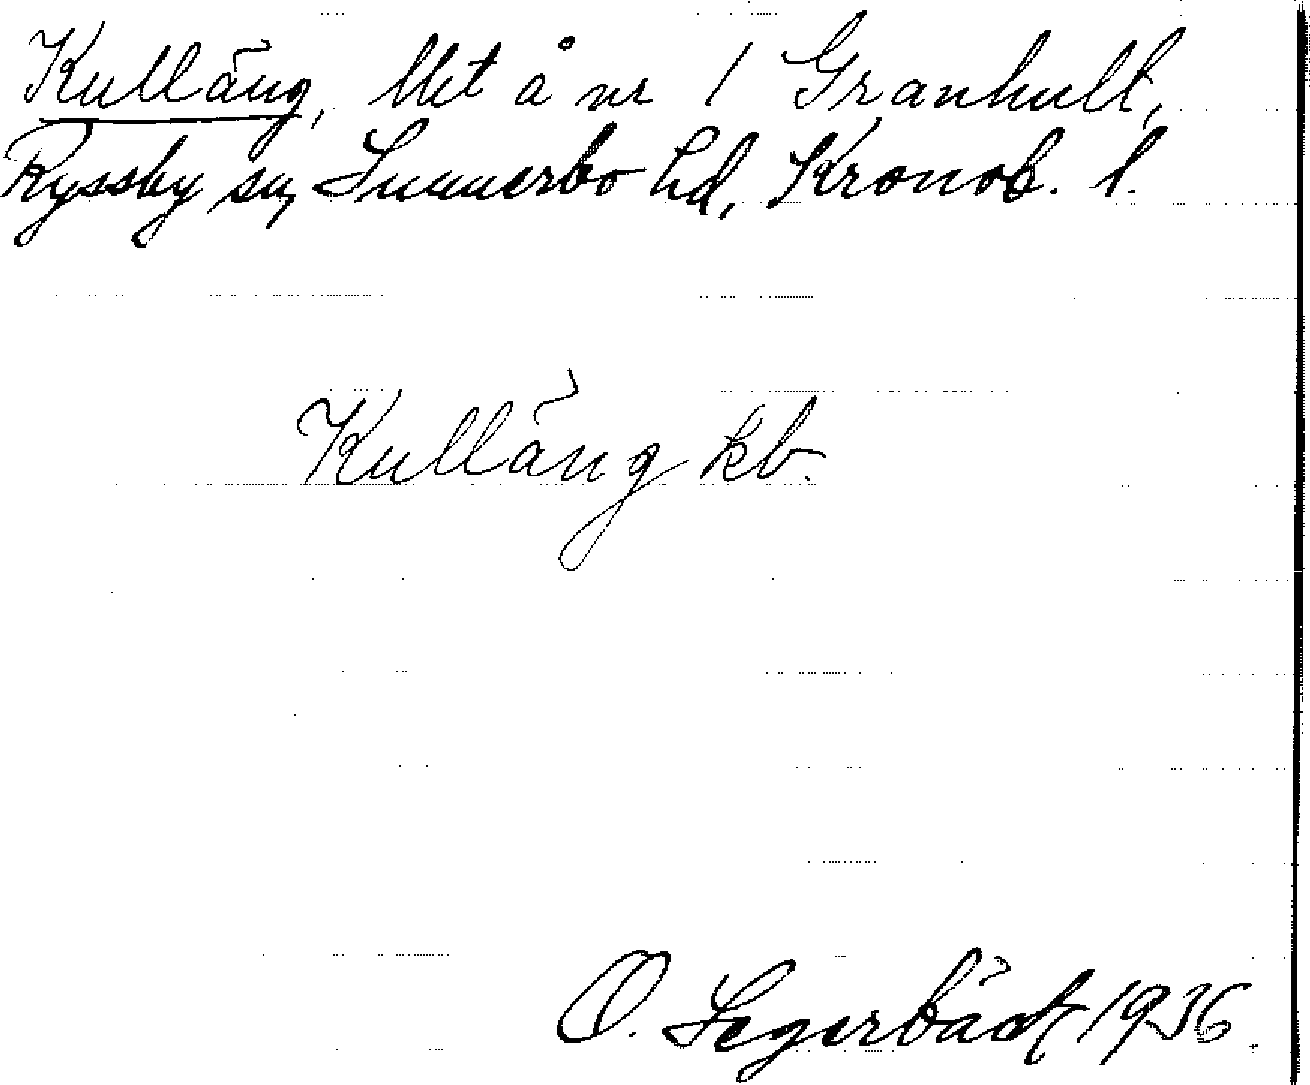 Kulläng, Ut å nr 1 Granhult,
Ryssby sn, Sunnerbo hd, Kronob. l.
Kulläng kb.
O. Segerbäck 1936.